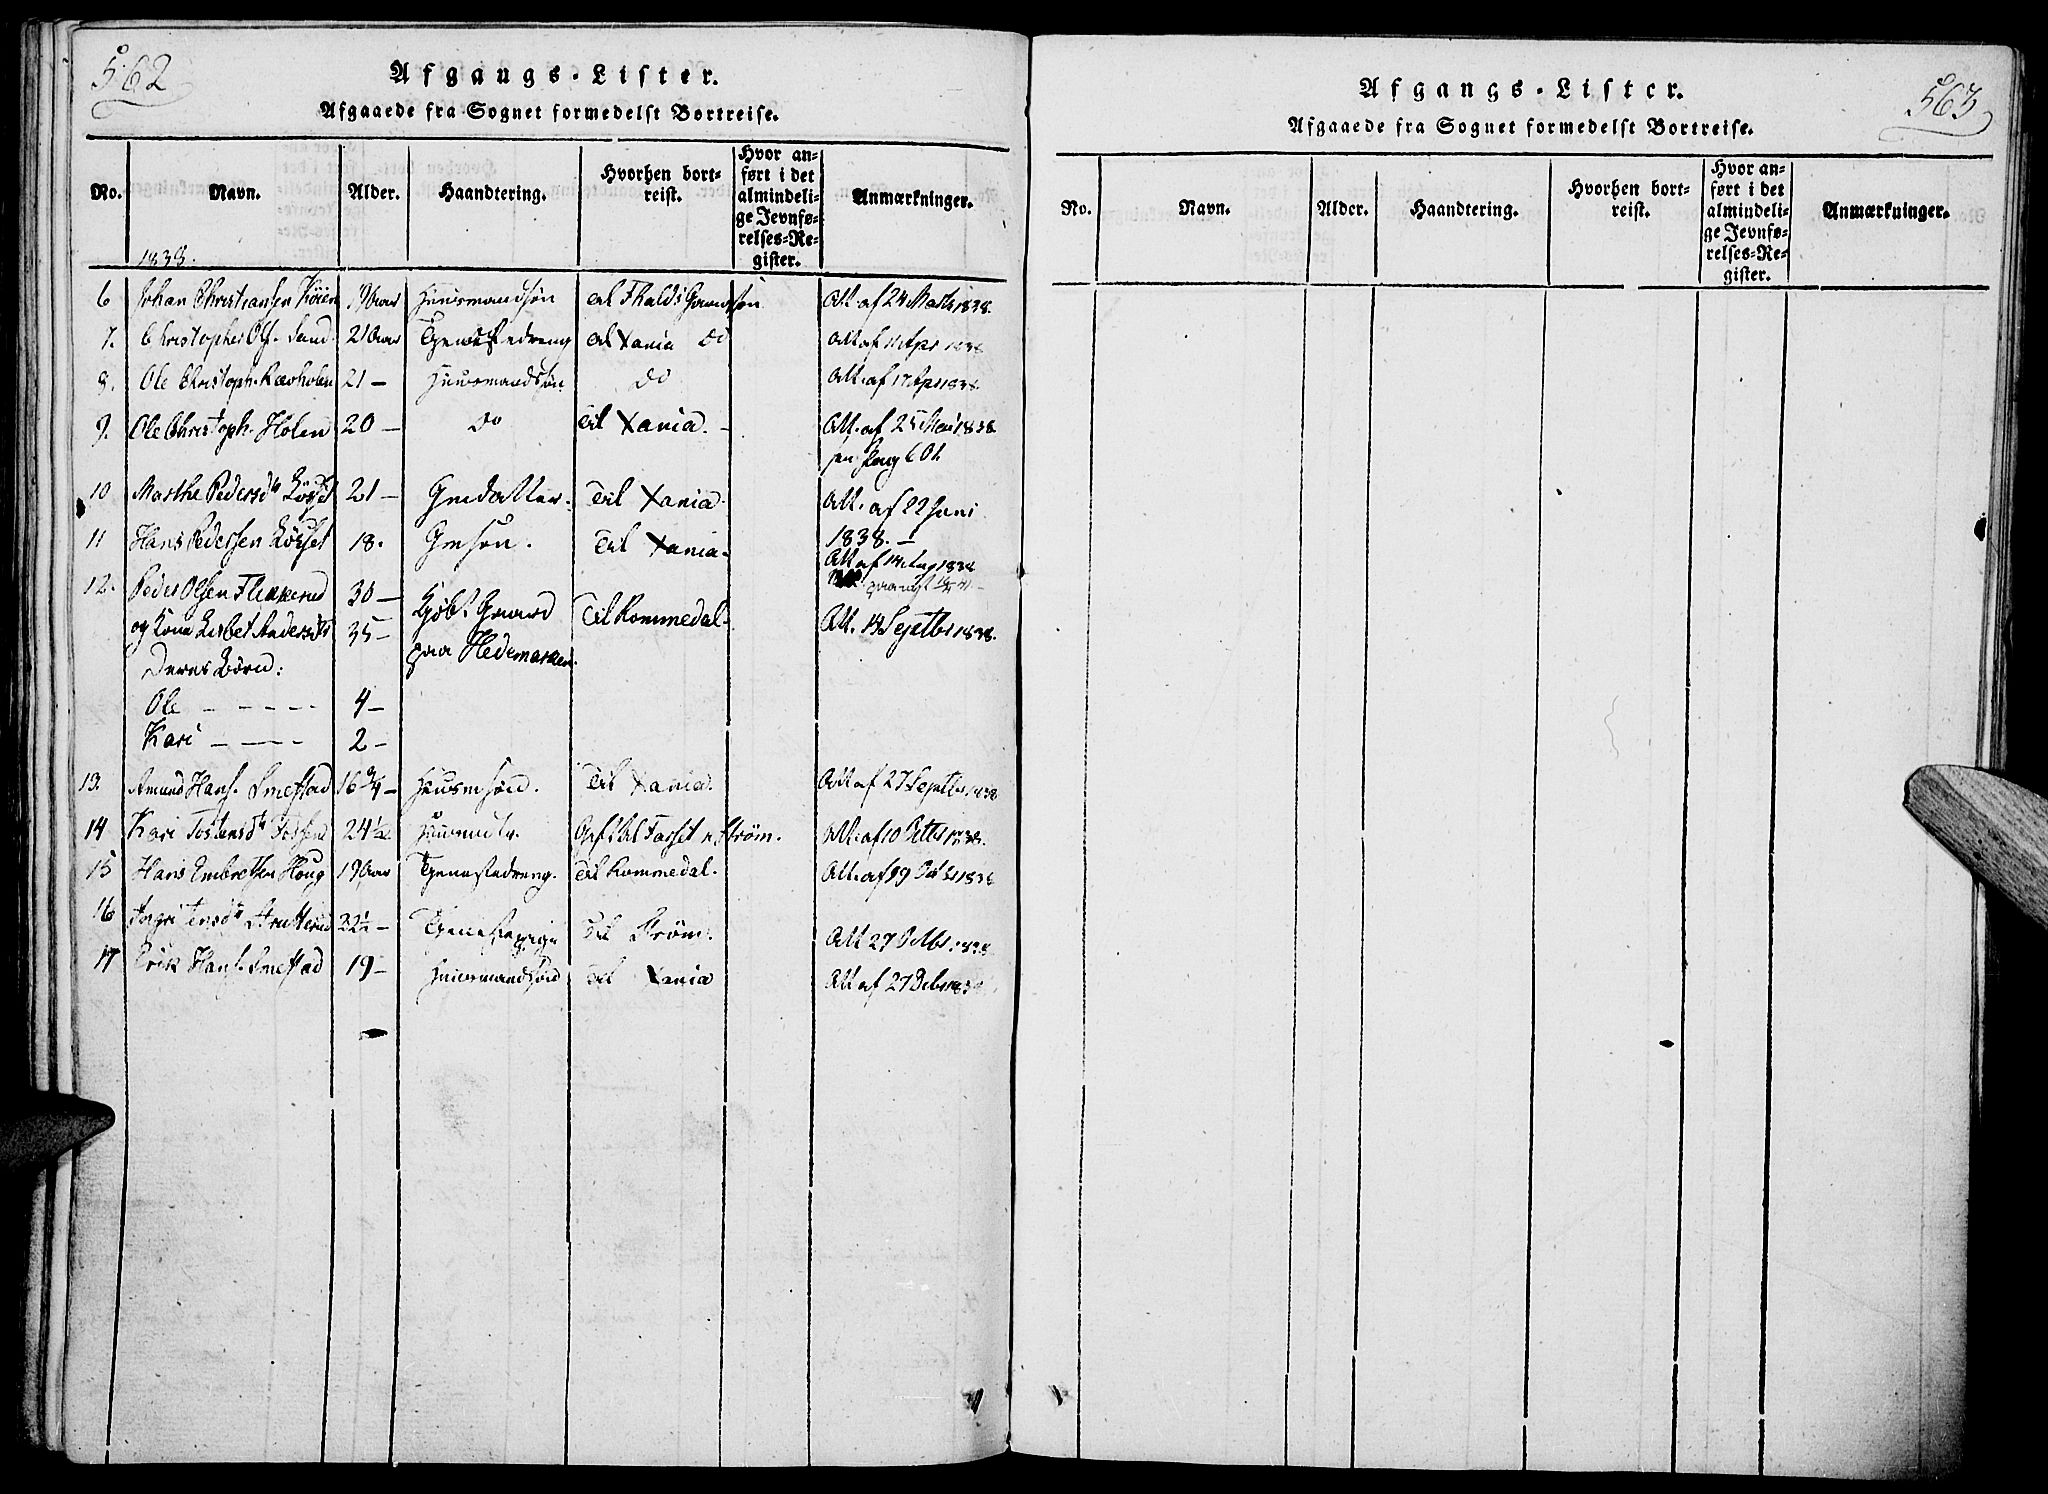 562
Afgangs-Lister.
Afgaaede fra Sognet formedelst Bortreise.
No. Navn. Alder. Haandtering. Hvorhen bortreist. Hvor anført i det almindelige Jevnførelses-Register. Anmærkninger.
1838.
6 Johan Christiansen Köien 19 Aar Huusmandsøn til Fhalds Garnison Att. af 24 Marts 1838.
7. Christopher Ols. Sand 21 Aar Tjenestedreng til Xania do Att af 11 Apr 1838
8. Ole Christoph. Ravholen 21 – Huusmandsøn do Att. af 17 Apr 1838
9. Ole Christoph. Holen 20 – do Til Xania. – Att. af 25 Mai 1838
Pag 601.
10 Marthe Pedersdtr 21 – Gmdatter. Til Xania Att. af 22 Juni
11 Hans Pedersen 18. Gmsøn. Til Xania. 1838. –
Att af 14 Aug 1838
12. Peder Olsen Flikkerud 30 –
og Kone Lisbet Andersdtr 35 – Kjøbt Gaard paa Hedemarken. Til Rommedal. Att. 14 Septbr 1838.
Deres Børn:
Ole – – – – 4 –
Kari – – – 2 –
13. Amund Hans. Smestad 16 3/4 – Huusmsøn. Til Xania. Att af 27 Septbr 1838
14 Kari Tostensdtr 24 1/2 Huusmdtr. Gift til Fasset i Strøm. Att. af 10 Octbr 1838.
15 Hans Embretsen Houg 19 Aar Tjenestedreng. Til Rommedal. Att. af 19 Octbr 1838
16 Ingri Jensdtr 22 1/2 – Tjenestepige Til Strøm. Att 27 Octbr 1838
17 Erik Hans. Smestad 19 – Huusmandsøn Til Xania Att af 27 Debr 1838
563
Afgangs-Lister.
Afgaaede fra Sognet formedelst Bortreise.
No. Navn. Alder. Haandtering. Hvorhen bortreist. Hvor anført i det almindelige Jevnførelses-Register. Anmærkninger.